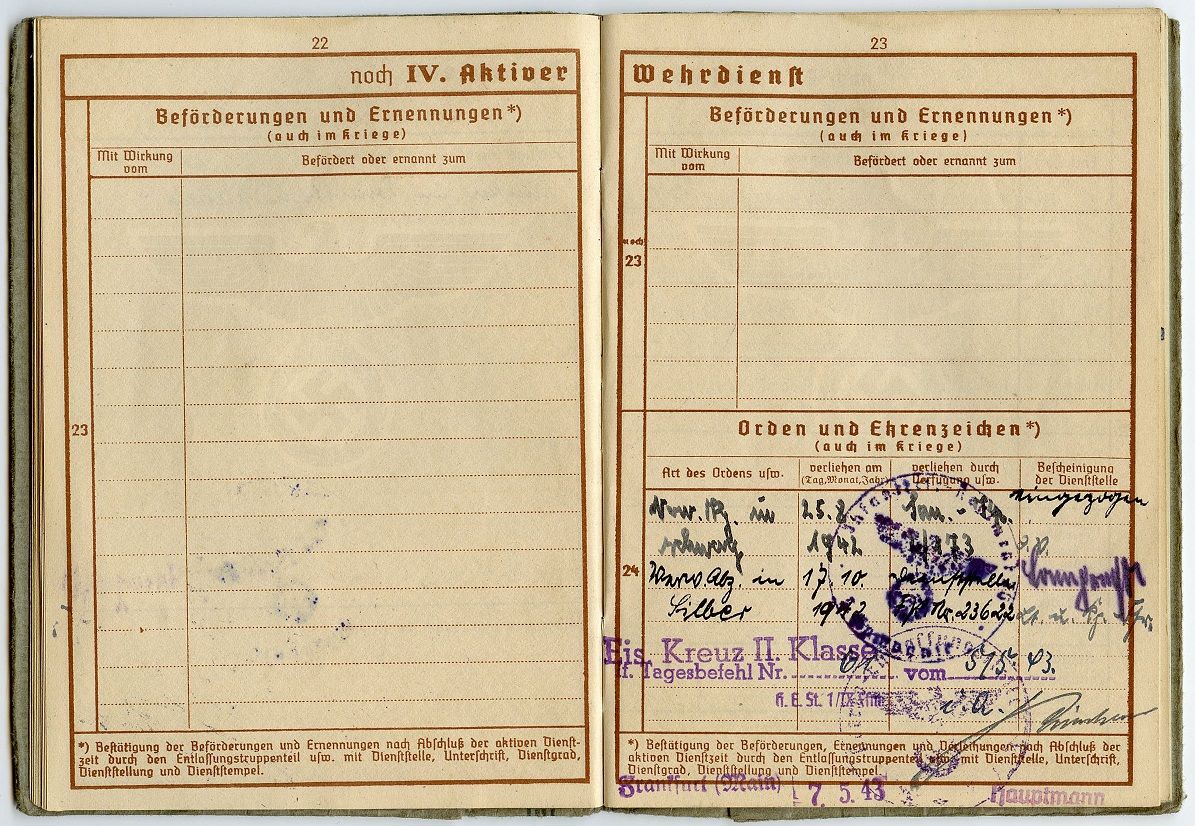 22
noch IV. Aktiver
Beförderungen und Ernennungen*)
(auch im Kriege)
Mit Wirkung vom
Befördert oder ernannt zum
23
*) Bestätigung der Beförderungen und Ernennungen nach Abschluß der aktiven Dienst-
zeit durch den Entlassungstruppenteil usw. mit Dienststelle, Unterschrift, Dienstgrad,
Dienststellung und Dienststempel.
23
Wehrdienst
Beförderungen und Ernennungen*)
(auch im Kriege)
Mit Wirkung vom
Befördert oder ernannt zum
noch
23
Orden und Ehrenzeichen*)
(auch im Kriege)
Art des Ordens usw.
verliehen am
(Tag, Monat, Jahr)
verliehen durch
Verfügung usw.
Bescheinigung
der Dienststelle
eingezogen
Verw. Abz. in 25.8.
schwarz 1942
24
Verw. Abz. in 17.10.
Silber 1942 Nr. 23622
Eis. Kreuz II. Klasse
lf. Tagesbefehl Nr. vom 5/5. 43.
*) Bestätigung der Beförderungen, Ernennungen und Verleihungen nach Abschluß der
aktiven Dienstzeit durch den Entlassungstruppenteil usw. mit Dienststelle, Unterschrift,
Dienstgrad, Dienststellung und Dienststempel.
Frankfurt (Main) 7. 5. 43 Hauptmann